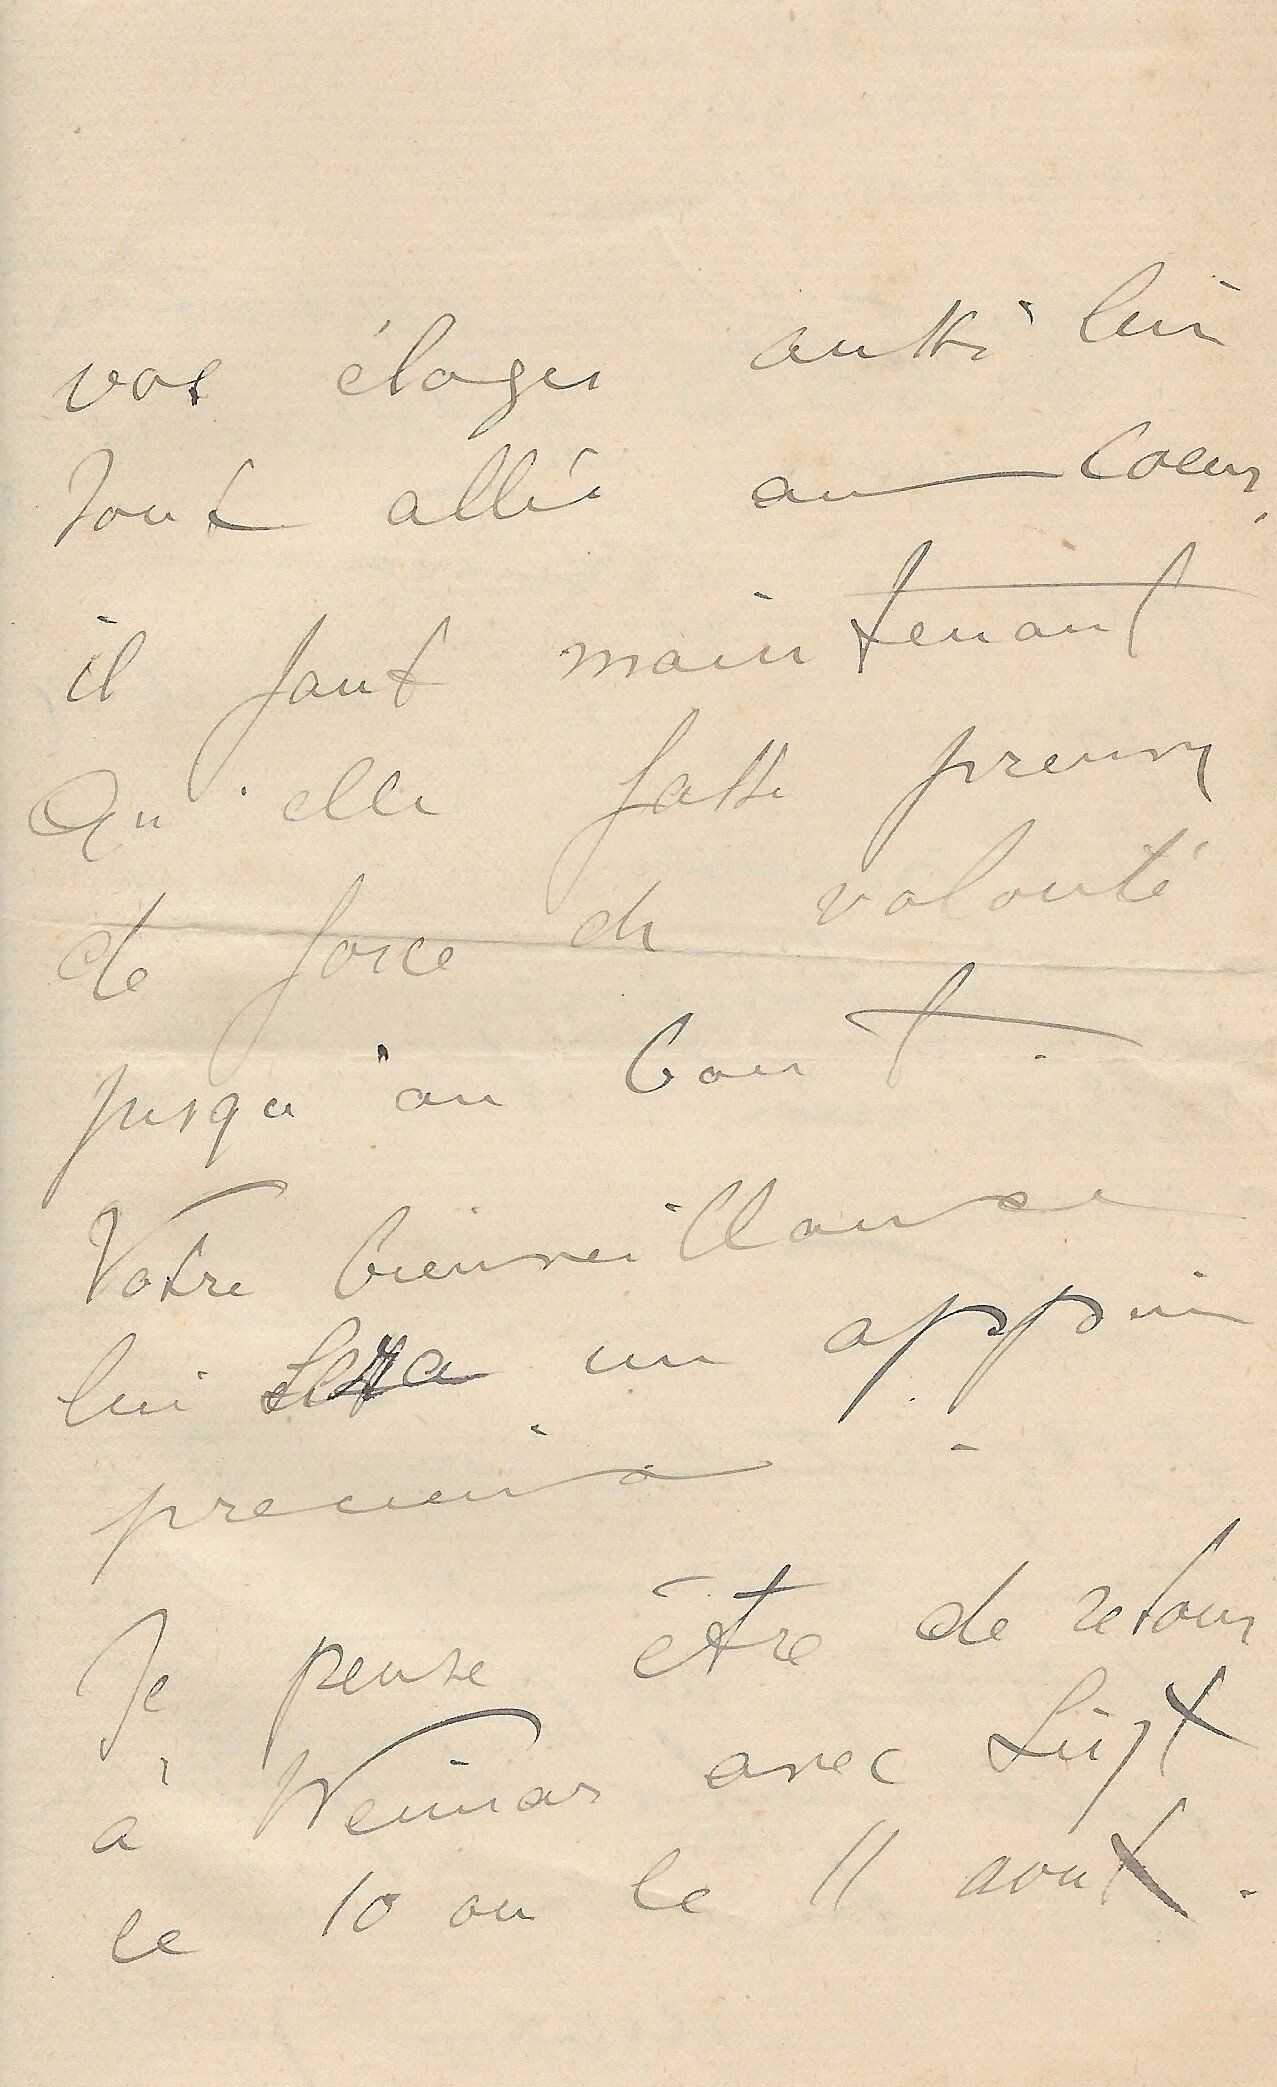 vos éloges aussi lui
sont allés au coeur,
il faut maintenant
Qu'elle fasse preuve
de force de volonté
jusqu'au bout.
Votre bienveillance
lui sera un appui
precieux.
Je pense être de retour
à Weimar avec Liszt
le 10 ou le 11 aout.